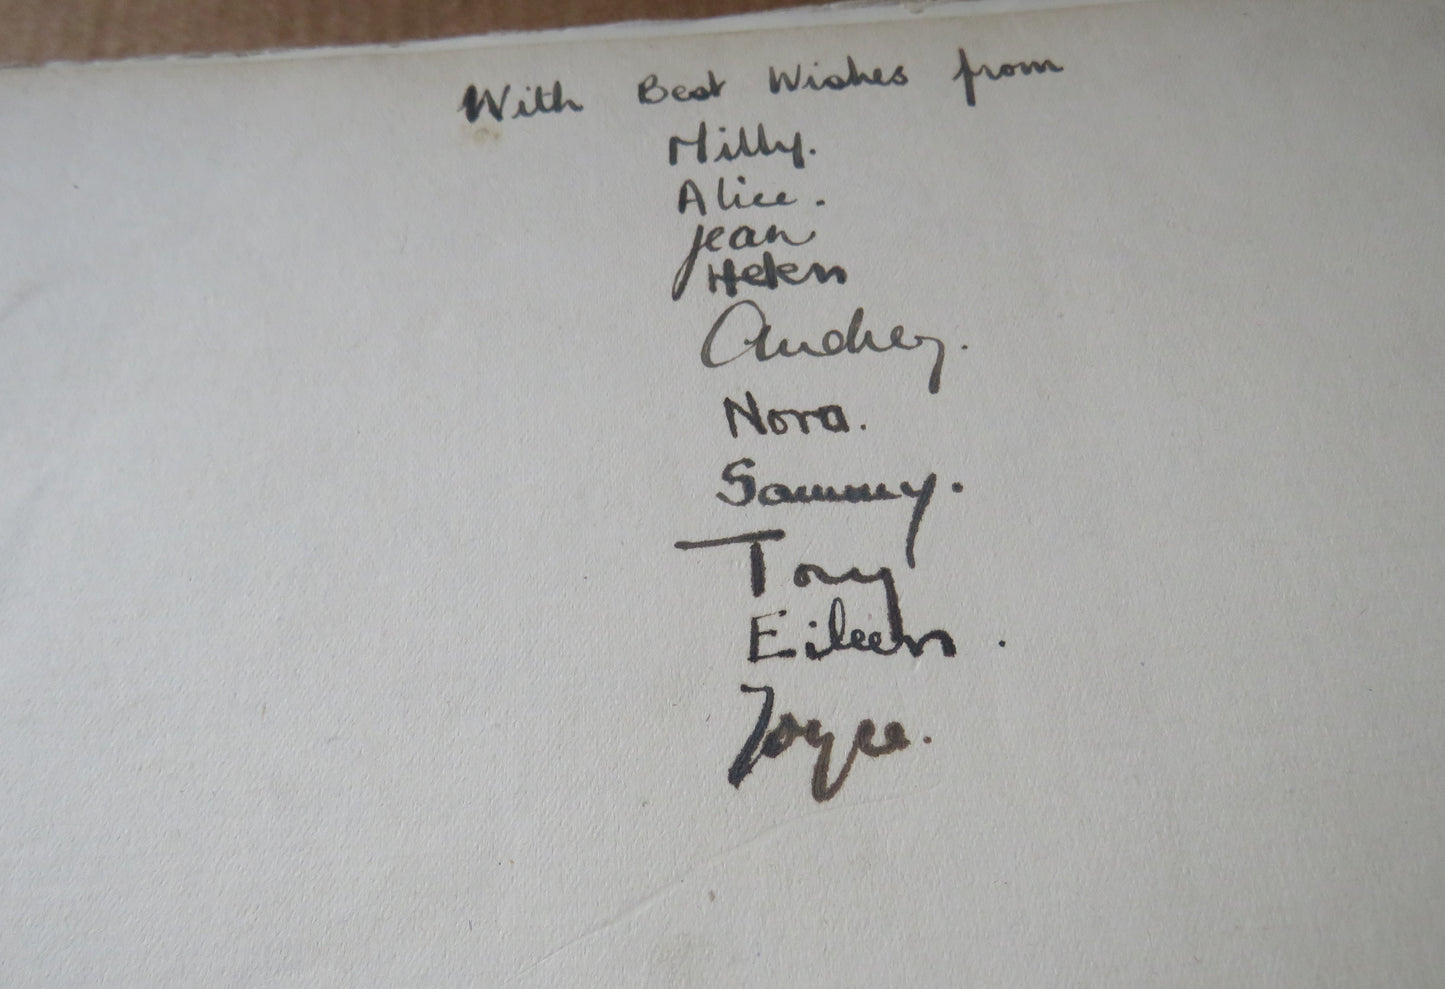 With Best Wishes from
Milly.
Alice.
Jean
Helen
Audrey.
Nora.
Sammy.
Tony
Eileen.
Joyce.